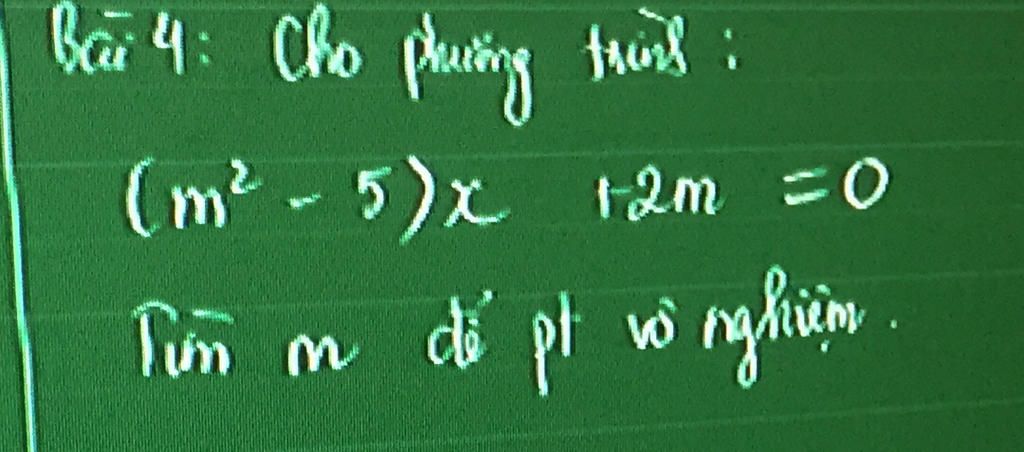 Bài 4: Cho phương trình:
(m² - 5)x + 2m = 0
Tìm m để pt vô nghiệm.